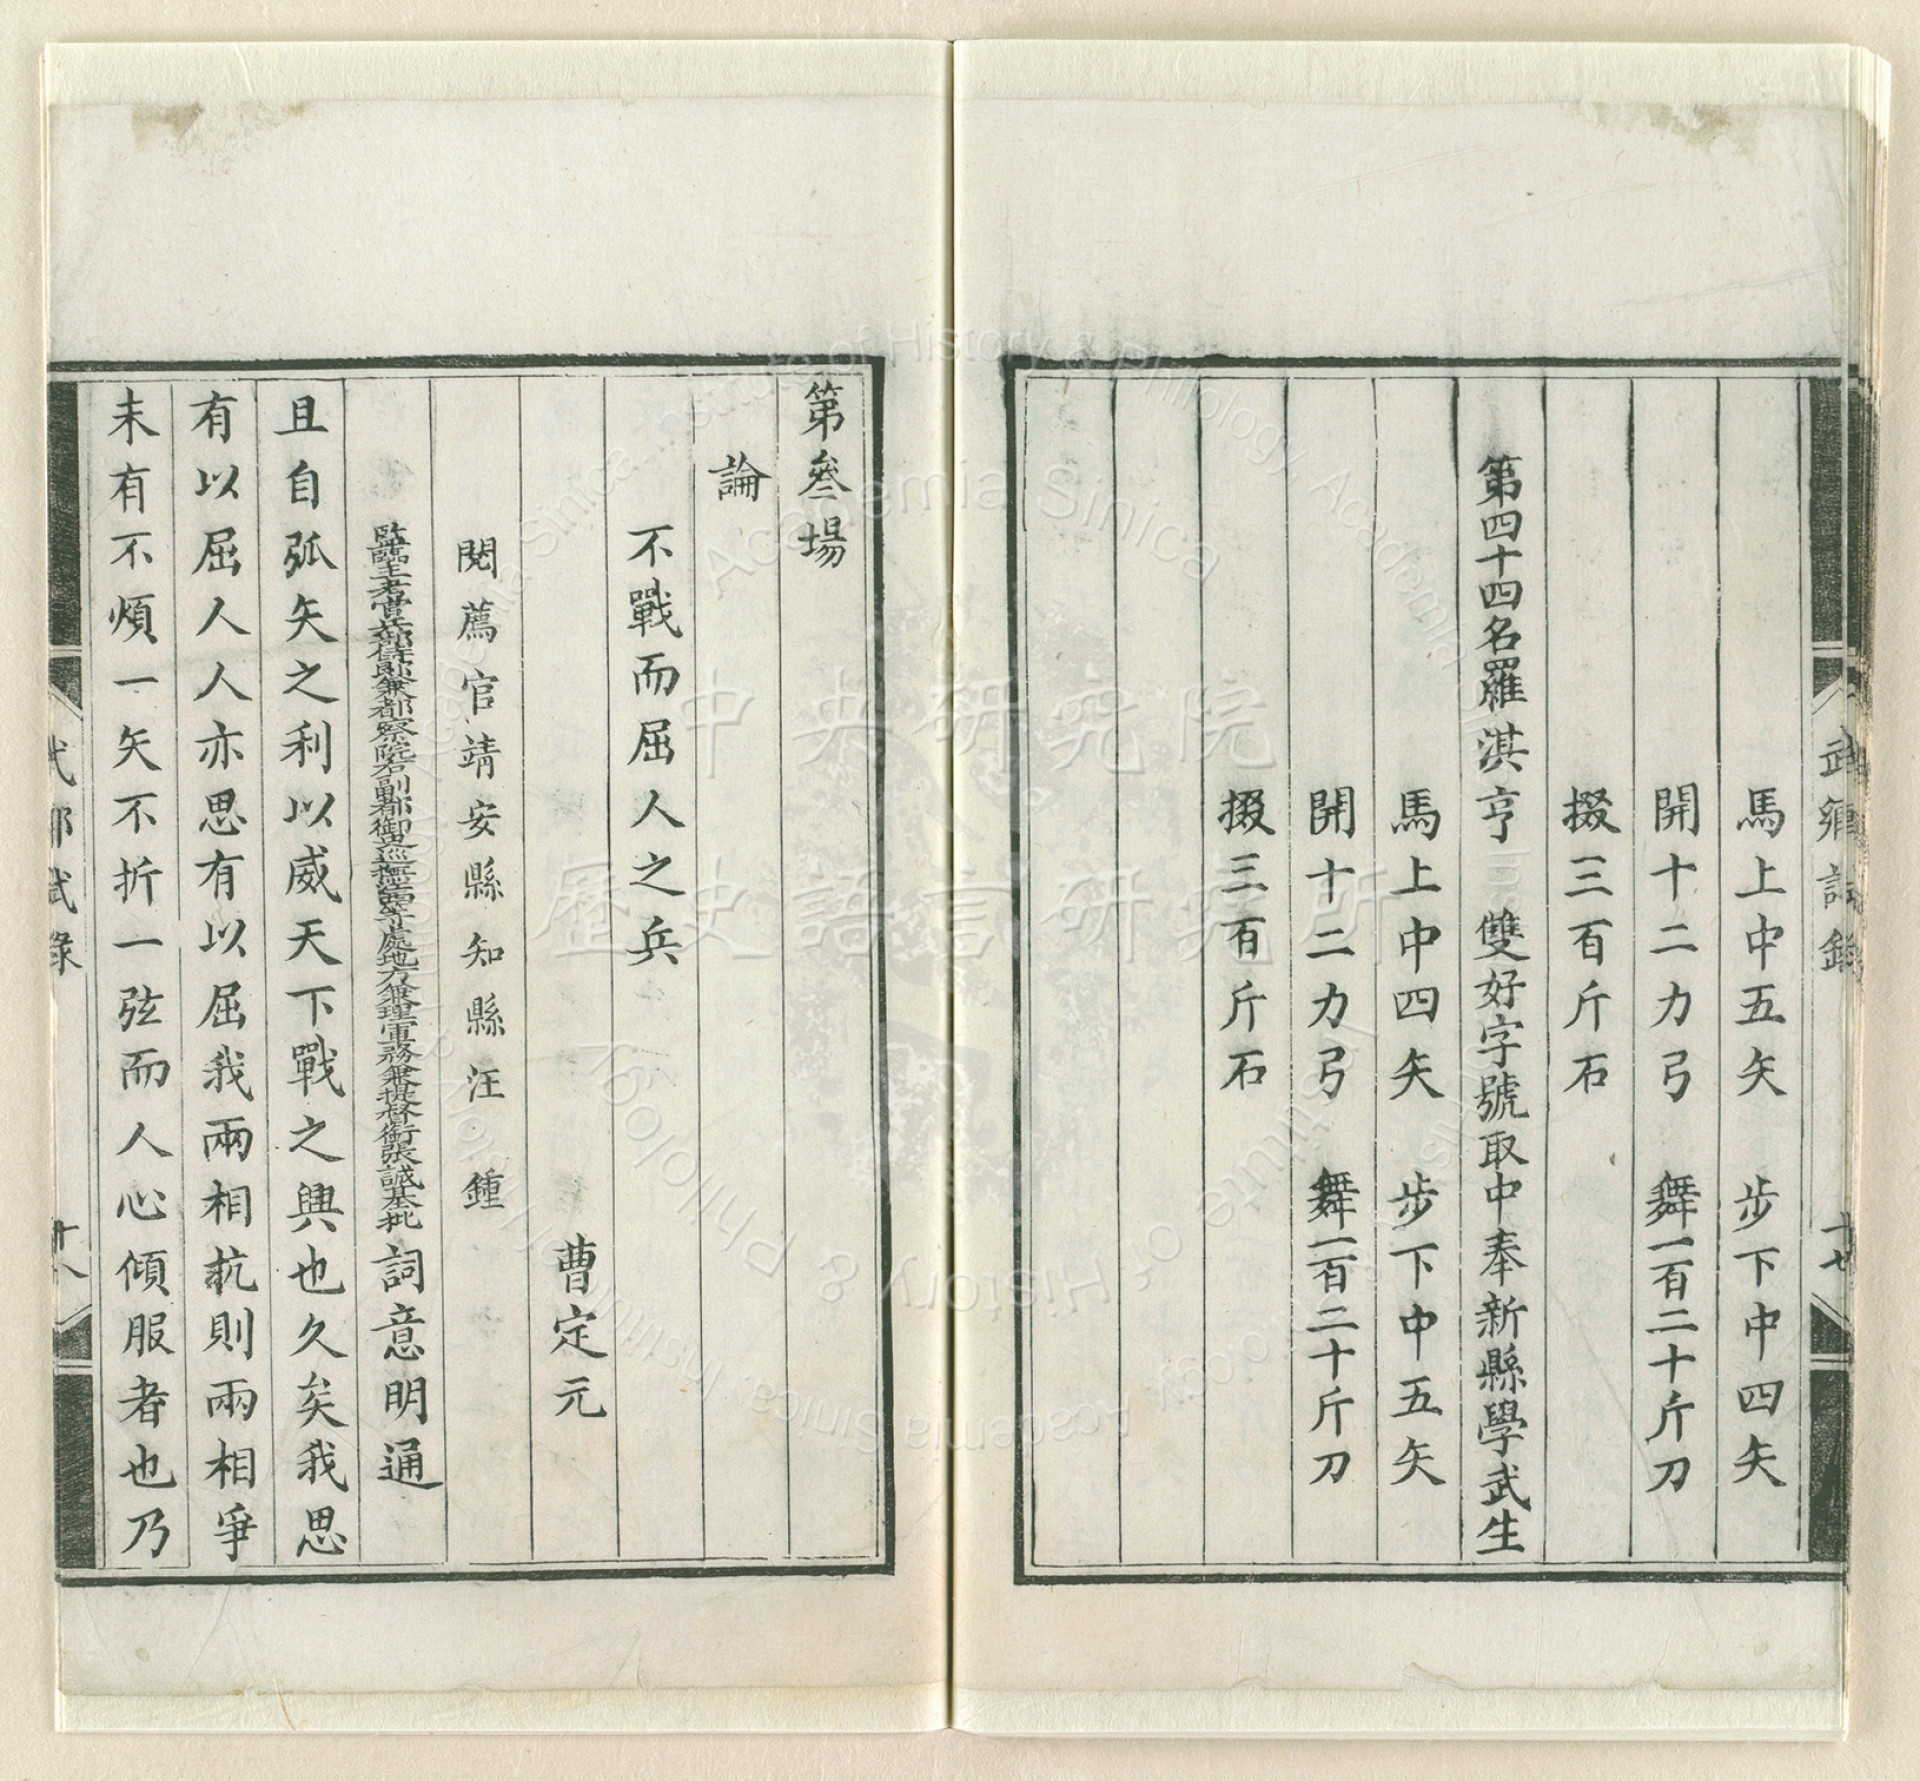 武鄉試錄
十七
馬上中五矢 步下中四矢
開十二力弓 舞一百二十斤刀
掇三百斤石
第四十四名羅淇亨 雙好字號取中奉新縣學武生
馬上中四矢 步下中五矢
開十二力弓 舞一百二十斤刀
掇三百斤石
第叄場
論
不戰而屈人之兵
曹定元
閱薦官靖安縣知縣汪 鍾
監臨主考官兵部侍郎兼都察院右副都御史巡撫江西等處地方兼理軍務兼提督銜張誠基批詞意明通
且自弧矢之利以威天下戰之興也久矣我思
有以屈人人亦思有以屈我兩相抗則兩相爭
未有不煩一矢不折一弦而人心傾服者也乃
武鄉試錄
十八
中央研究院
歷史語言研究所
Institute of History & Philology, Academia Sinica